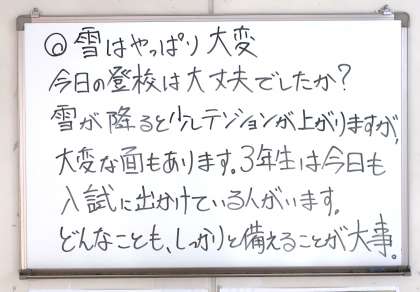 ◎雪はやっぱり大変
今日の登校は大丈夫でしたか?
雪が降ると少しテンションが上がりますが、
大変な面もあります。3年生は今日も
入試に出かけている人がいます。
どんなことも、しっかりと備えることが大事。